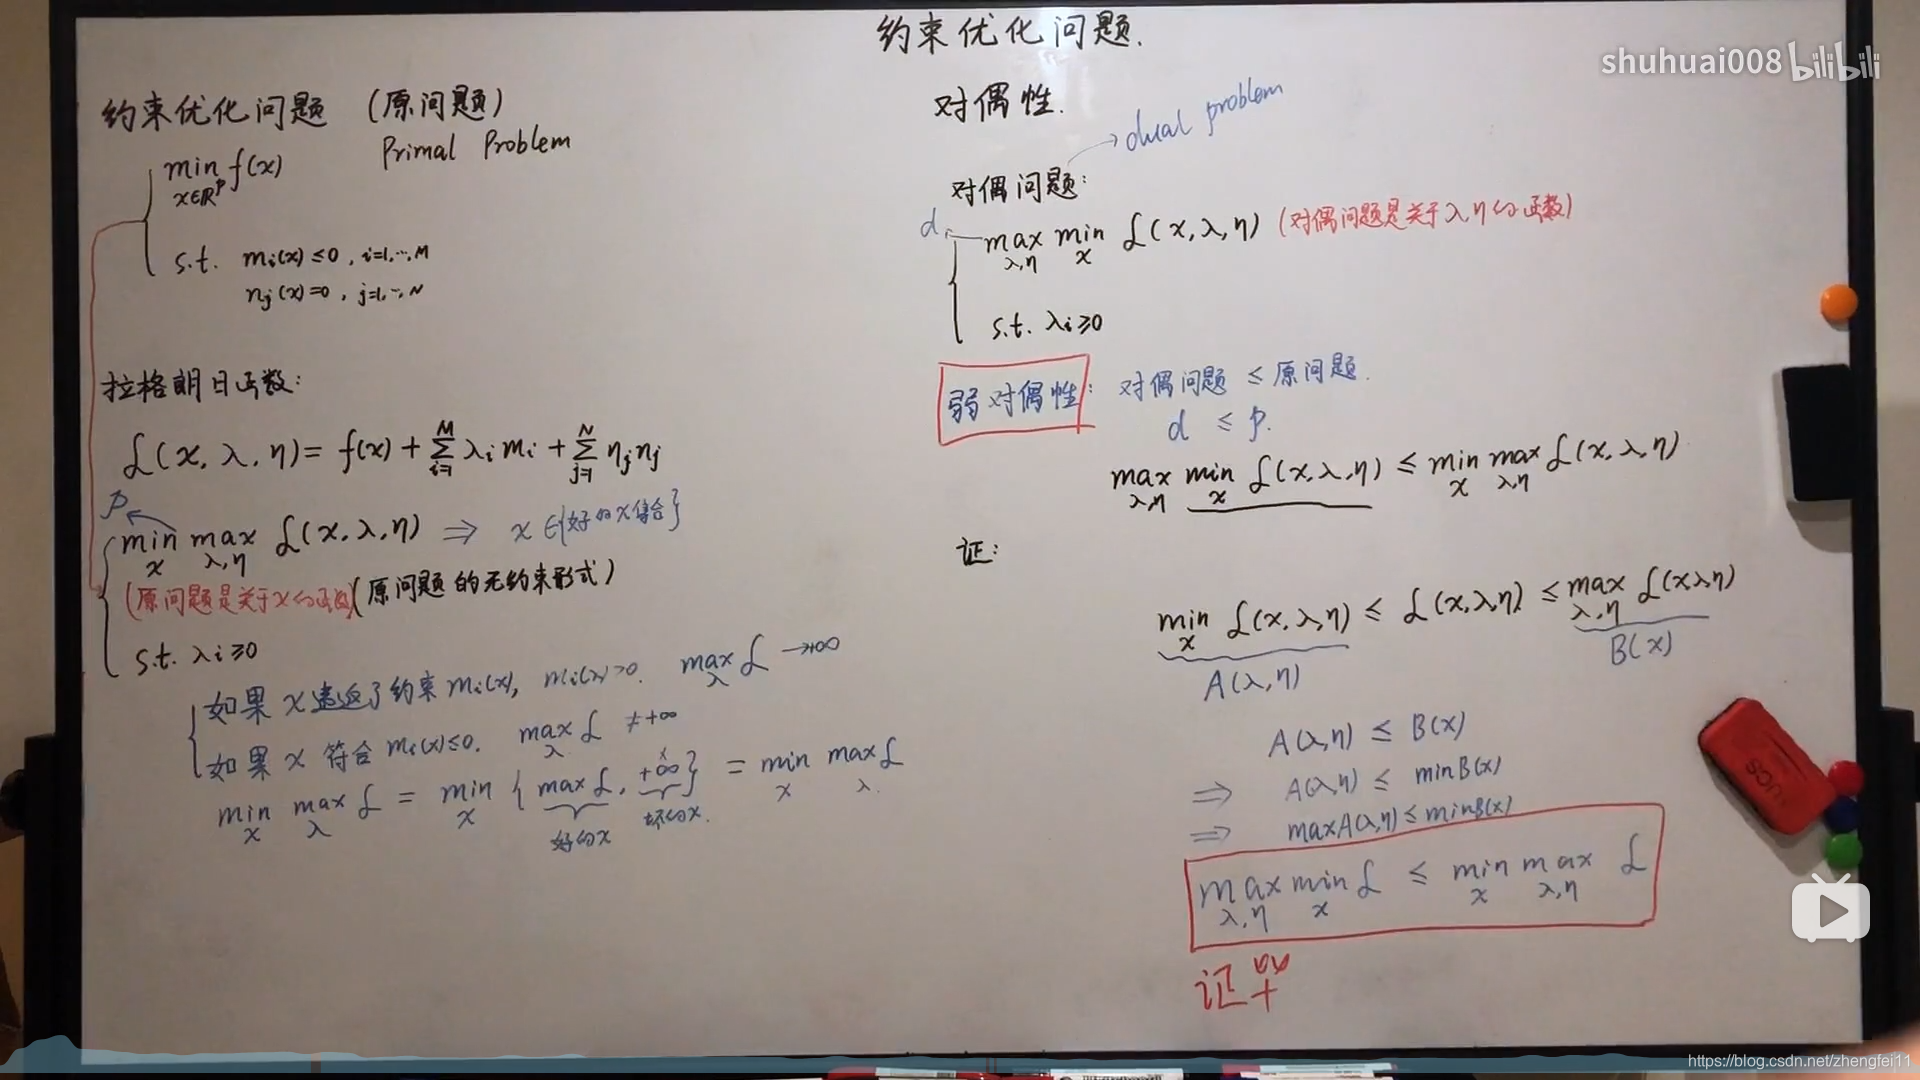 约束优化问题.
shuhuai008 bilibili
约束优化问题 (原问题)
Primal Problem
min f(x)
x∈ℝᵖ
s.t. mᵢ(x)≤0, i=1,…,M
nⱼ(x)=0, j=1,…,N
拉格朗日函数:
ℒ(x, λ, η)= f(x) + Σ_{i=1}^{M} λᵢ mᵢ + Σ_{j=1}^{N} ηⱼ nⱼ
p
min_x max_{λ,η} ℒ(x, λ, η) ⇒ x∈{好的x集合}
(原问题是关于x的函数) (原问题的无约束形式)
s.t. λᵢ≥0
如果 x 违返了约束 mᵢ(x), mᵢ(x)>0. max_λ ℒ →+∞
如果 x 符合 mᵢ(x)≤0. max_λ ℒ ≠+∞
min_x max_λ ℒ = min_x {max ℒ, +∞} = min_x max_λ ℒ
好的x 坏的x.
对偶性.
dual problem
对偶问题:
d
max_{λ,η} min_x ℒ(x, λ, η) (对偶问题是关于λη的函数)
s.t. λᵢ≥0
弱对偶性: 对偶问题 ≤ 原问题.
d ≤ p.
max_{λ,η} min_x ℒ(x,λ,η) ≤ min_x max_{λ,η} ℒ(x,λ,η)
证:
min_x ℒ(x,λ,η) ≤ ℒ(x,λ,η) ≤ max_{λ,η} ℒ(xλη)
A(λ,η) B(x)
A(λ,η) ≤ B(x)
⇒ A(λ,η) ≤ minB(x)
⇒ maxA(λ,η) ≤ minB(x)
max_{λ,η} min_x ℒ ≤ min_x max_{λ,η} ℒ
证毕
https://blog.csdn.net/zhengfei11